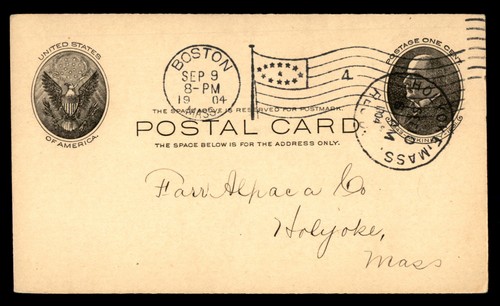 UNITED STATES
OF AMERICA.
BOSTON
SEP 9
8-PM
19 04
MASS.
4
POSTAGE ONE CENT
THE SPACE ABOVE IS RESERVED FOR POSTMARK.
POSTAL CARD
THE SPACE BELOW IS FOR THE ADDRESS ONLY.
HOLYOKE, MASS.
REC'D.
Farr Alpaca Co
Holyoke,
Mass